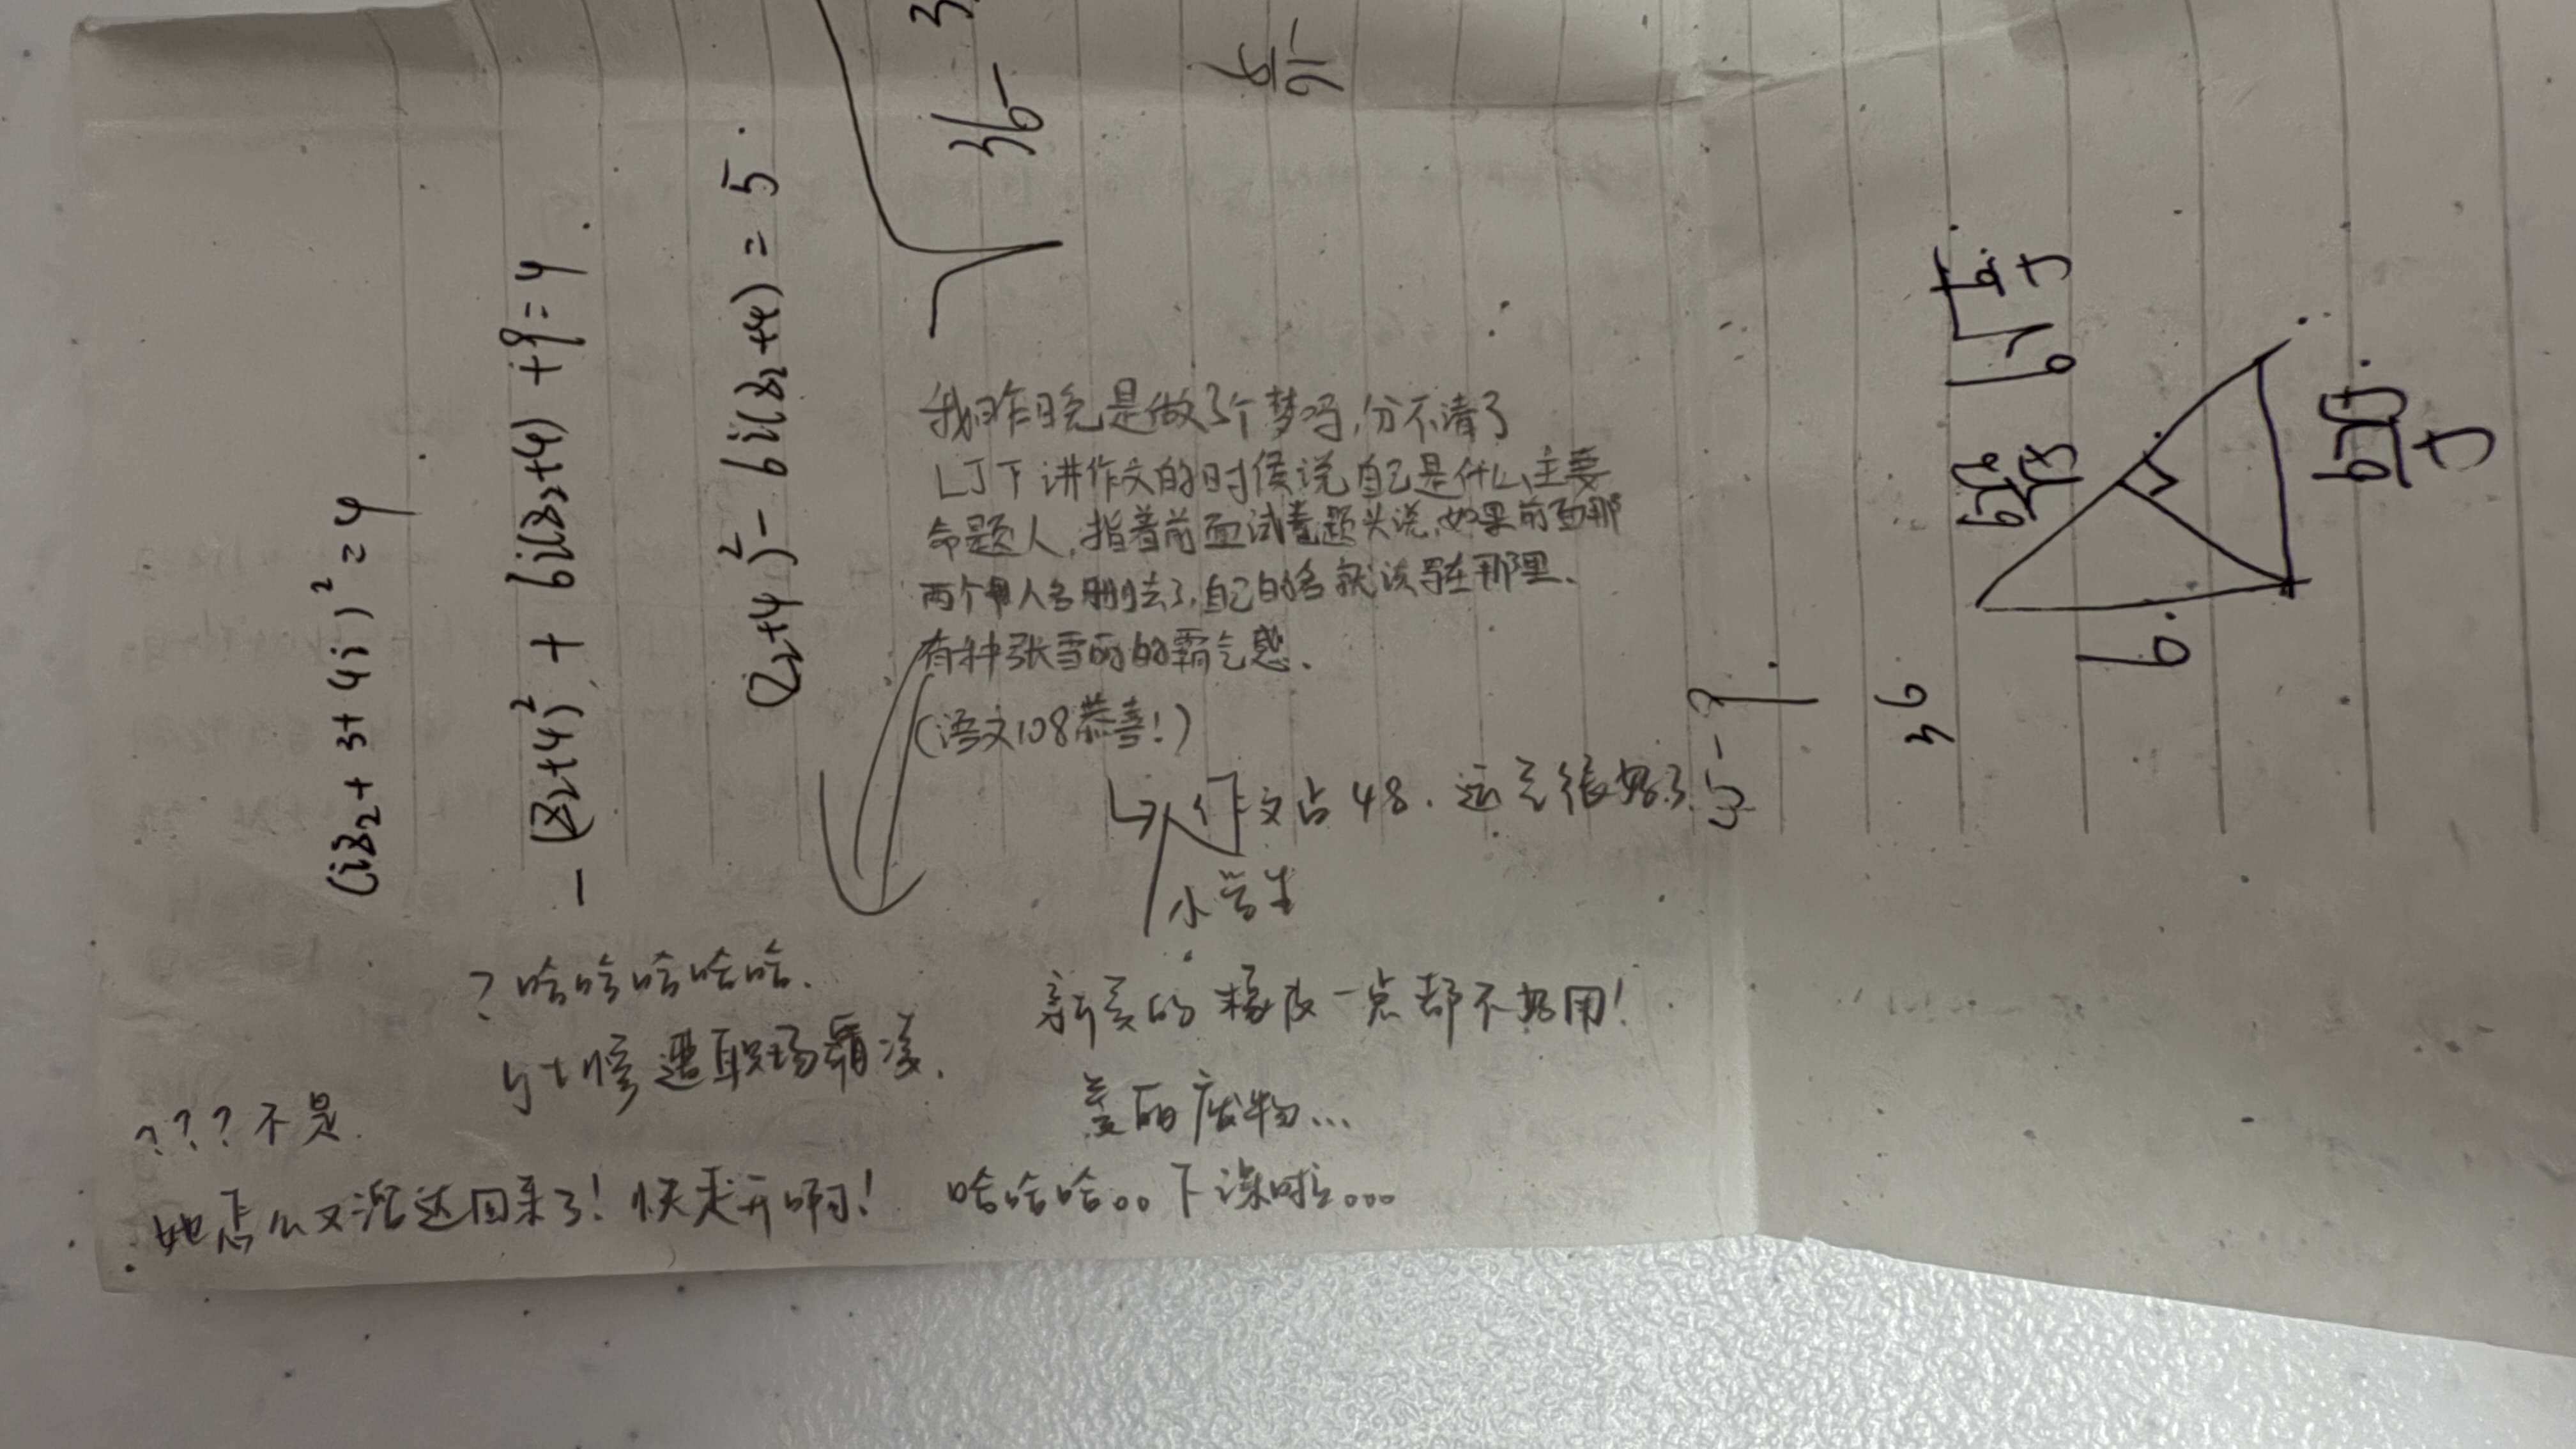 (iz₂+3+4i)²=4
-(z₂+4)²+6i(z₂+4)+9=4
(z₂+4)²-6i(z₂+4)=5
36-
我昨晚是做了个梦吗,分不清了
LJT讲作文的时候说自己是什么主要
命题人,指着前面试卷题头说,如果前面那
两个人名删去了,自己的名就该写在那里、
有种张雪丽的霸气感、
(语文108恭喜!)
作文占48.还是很好了
小学生
?哈哈哈哈哈.
惨遭职场霸凌.
新买的橡皮一点都不好用!
美丽废物...
???不是
她怎么又溜达回来了!快走开啊!
哈哈哈。。下课啦。。。
36
6.